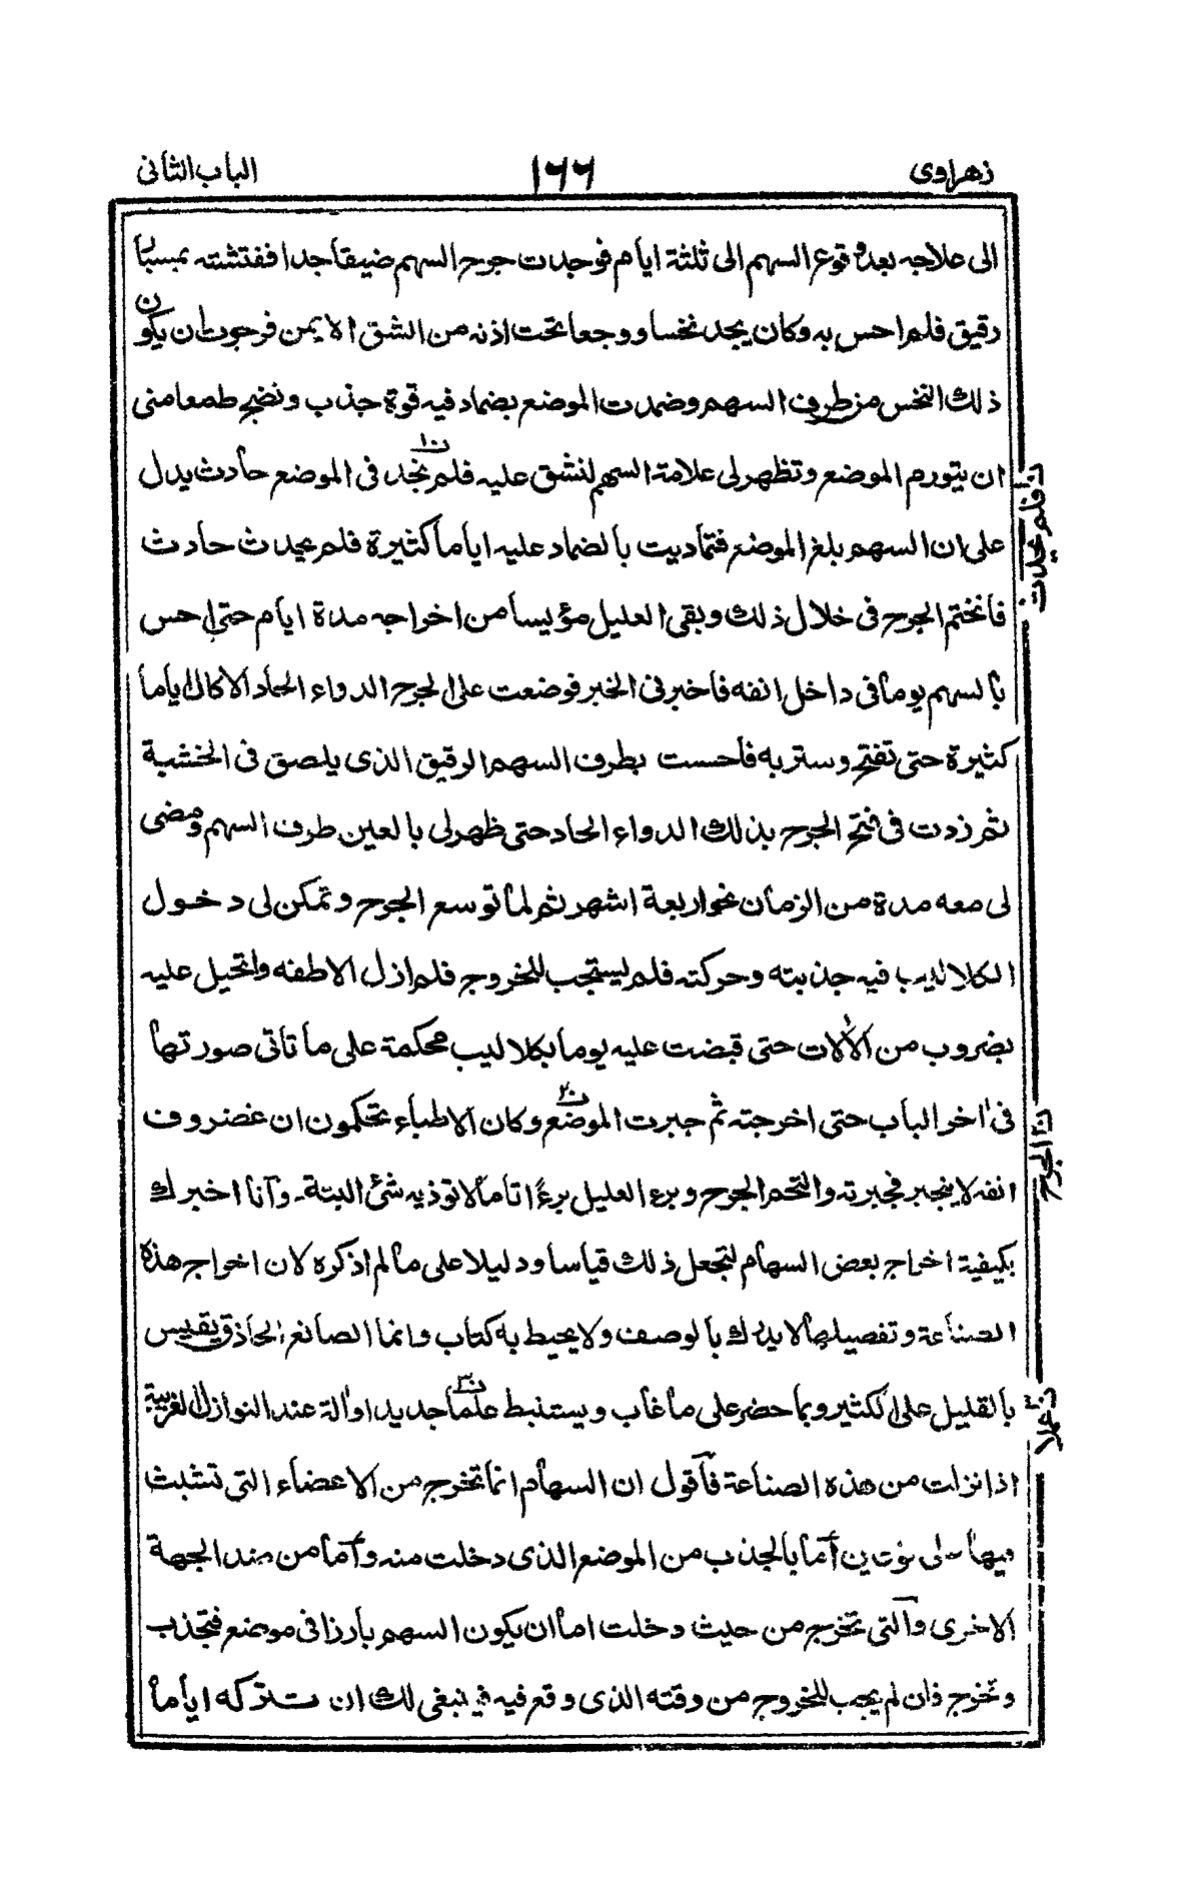 زهراوى ١٦٦ الباب الثانى
الى علاجه بعد وقوع السهم الى ثلثة ايام فوجدت جرح السهم ضيقا جدا ففتشته بمسبار
رقيق فلم احس به وكان يجد نخسا ووجعا تحت اذنه من الشق الايمن فرجوت ان يكون
ذلك النخس من طرف السهم وضمدت الموضع بضماد فيه قوة جذب ونضج طمعا منى
ان يتورم الموضع وتظهر لى علامة السهم لنشق عليه فلم نجد فى الموضع حادث يدل
على ان السهم بلغ الموضع فتماديت بالضماد عليه اياما كثيرة فلم يحدث حادث
فانختم الجرح فى خلال ذلك وبقى العليل مؤيسا من اخراجه مدة ايام حتى احس
بالسهم يوما فى داخل انفه فاخبرنى الخبر فوضعت على الجرح الدواء الحاد الاكال اياما
كثيرة حتى تفتح وستر به فاحست بطرف السهم الرقيق الذى يلصق فى الخشبة
ثم زدت فى فتح الجرح بذلك الدواء الحاد حتى ظهر لى بالعين طرف السهم ومضى
لى معه مدة من الزمان نحو اربعة اشهر ثم لما توسع الجرح وتمكن لى دخول
الكلاليب فيه جذبته وحركته فلم يستجب للخروج فلم ازل الاطفه واتحيل عليه
بضروب من الآلات حتى قبضت عليه يوما بكلاليب محكمة على ما تاتى صورتها
فى آخر الباب حتى اخرجته ثم جبرت الموضع ن٢ وكان الاطباء يحكمون ان غضروف
انفه لا ينجبر فجبرته والتحم الجرح وبرء العليل برءًا تاما لا توذيه شئ البتة۔ وانا اخبرك
بكيفية اخراج بعض السهام لتجعل ذلك قياسا ودليلا على ما لم اذكره لان اخراج هذه
الصناعة وتفصيلها لا يدرك بالوصف ولا يحيط به كتاب وانما الصانع الحاذق يقيس
بالقليل على الكثير وبما حضر على ما غاب ويستنبط علما ن٣ جديدا وآلة عند النوازل الغريبة
اذا نزلت من هذه الصناعة فاقول ان السهام انما تخرج من الاعضاء التى تنشبث
فيها على نوعين اما بالجذب من الموضع الذى دخلت منه واما من ضد الجهة
الاخرى والتى تخرج من حيث دخلت اما ان يكون السهم بارزا فى موضع فتجذب
وتخرج فان لم يجب للخروج من وقته الذى وقع فيه فينبغى لك ان تتركه اياما
ن١ فلم يحدث
ن٢ الجرح
ن٣ عملا